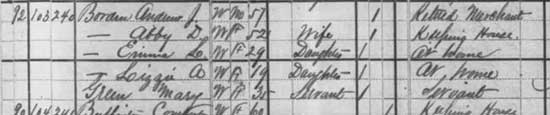 92 103 240 Borden Andrew J. W M 57 1 Retired Merchant
— Abby D. W F 52 Wife 1 Keeping House.
— Emma L. W F 29 Daughter 1 At Home
— Lizzie A. W F 19 Daughter 1 At Home
Green Mary W F 35 Servant 1 Servant
92 104 241 W F 60 1 Keeping House